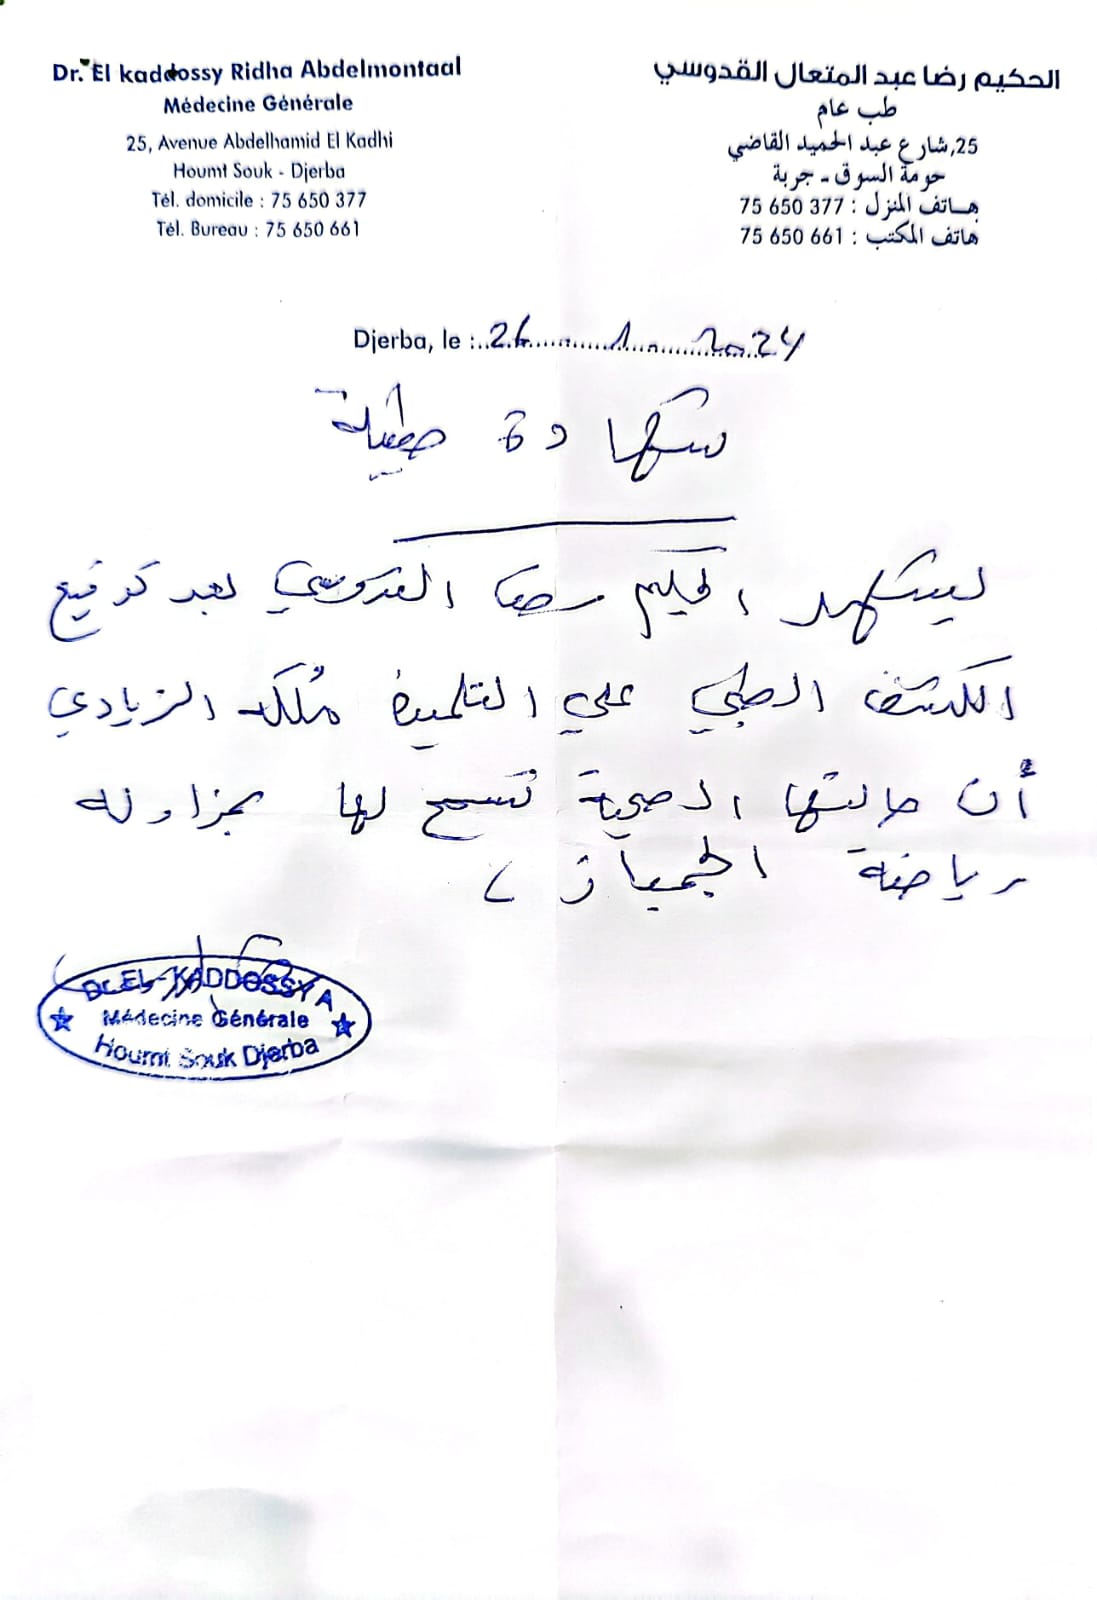 Dr. El kaddossy Ridha Abdelmontaal
Médecine Générale
25, Avenue Abdelhamid El Kadhi
Houmt Souk - Djerba
Tél. domicile : 75 650 377
Tél. Bureau : 75 650 661
الحكيم رضا عبد المتعال القدوسي
طب عام
25, شارع عبد الحميد القاضي
حومة السوق - جربة
هاتف المنزل : 377 650 75
هاتف المكتب : 661 650 75
Djerba, le : 26 1 2024
شهادة طبية
يشهد الحكيم رضا القدوسي بعد توقيع
الكشف الطبي على التلميذة مُلك الزيادي
أن حالتها الصحية تسمح لها بمزاولة
رياضة الجمباز
Dr. EL-KADDOSSY A
Médecine Générale
Houmt Souk Djerba